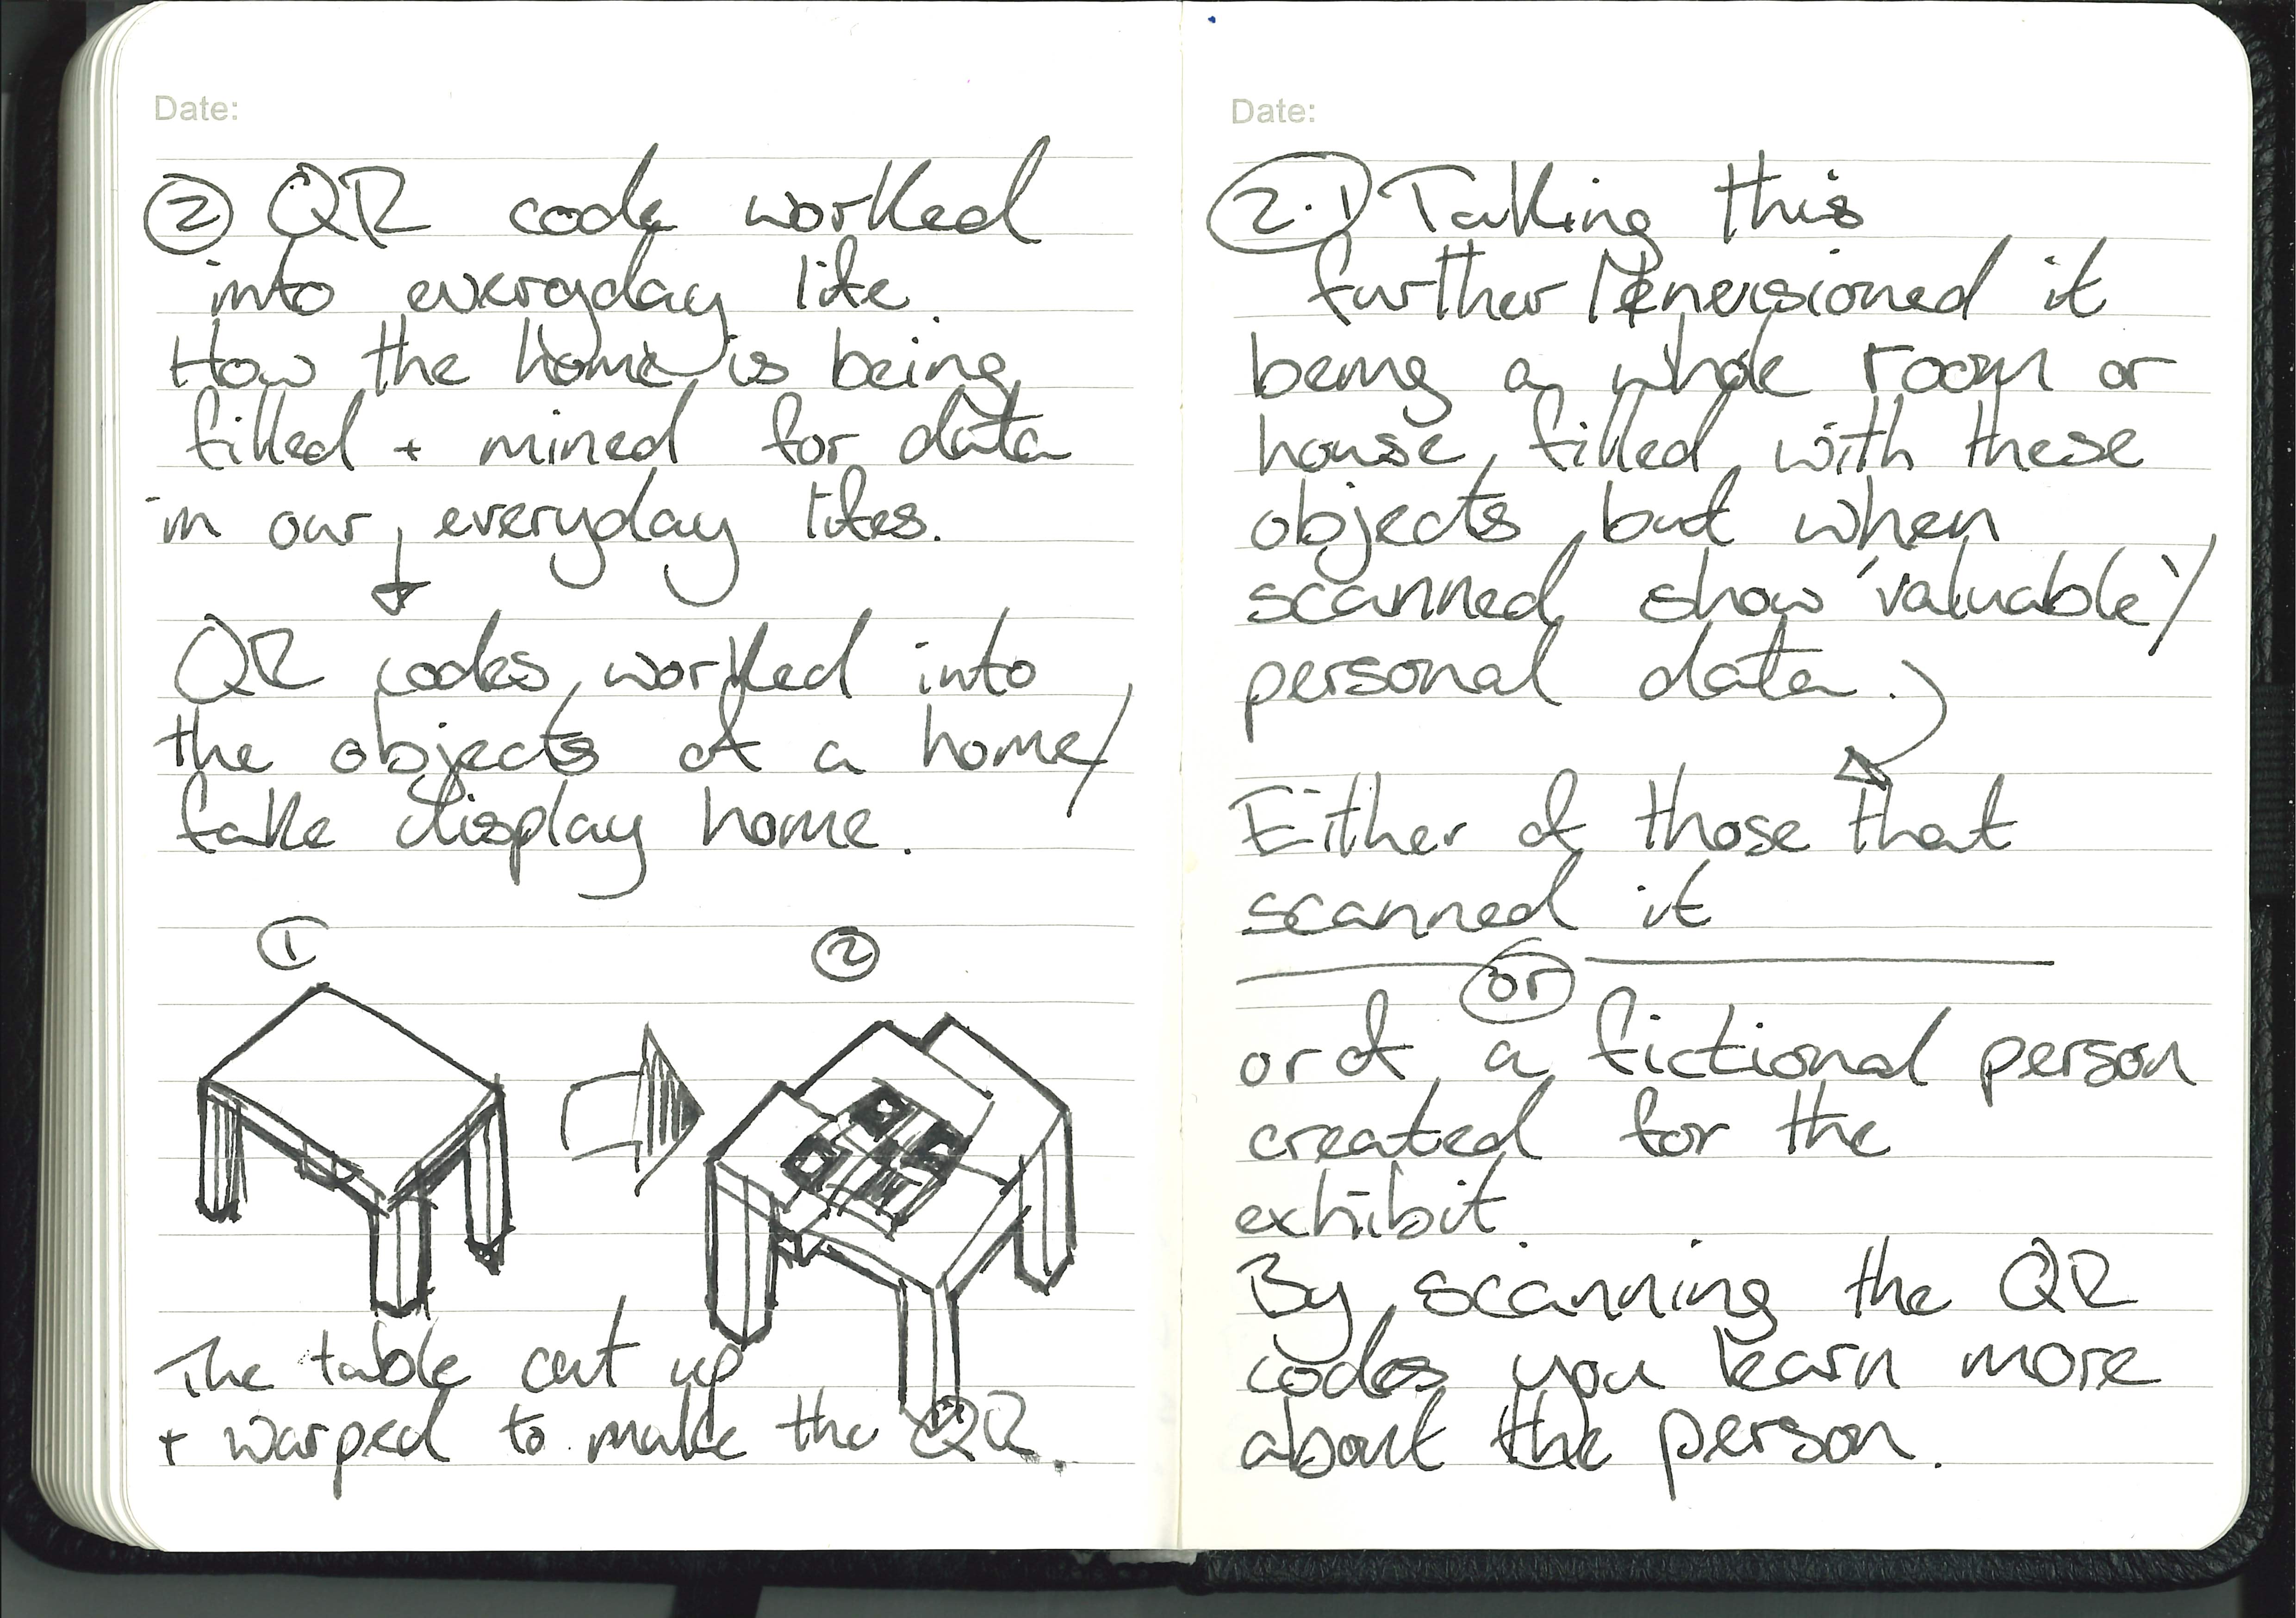 Date:
② QR code worked
into everyday life.
How the home is being
filled + mined for data
in our everyday lifes.
QR codes worked into
the objects of a home/
fake display home.
① ②
The table cut up
+ warped to make the QR.
Date:
2.1 Taking this
further I envisioned it
being a whole room or
house filled with these
objects but when
scanned show 'valuable'/
personal data.
Either of those that
scanned it
or
or of a fictional person
created for the
exhibit.
By scanning the QR
codes you learn more
about the person.